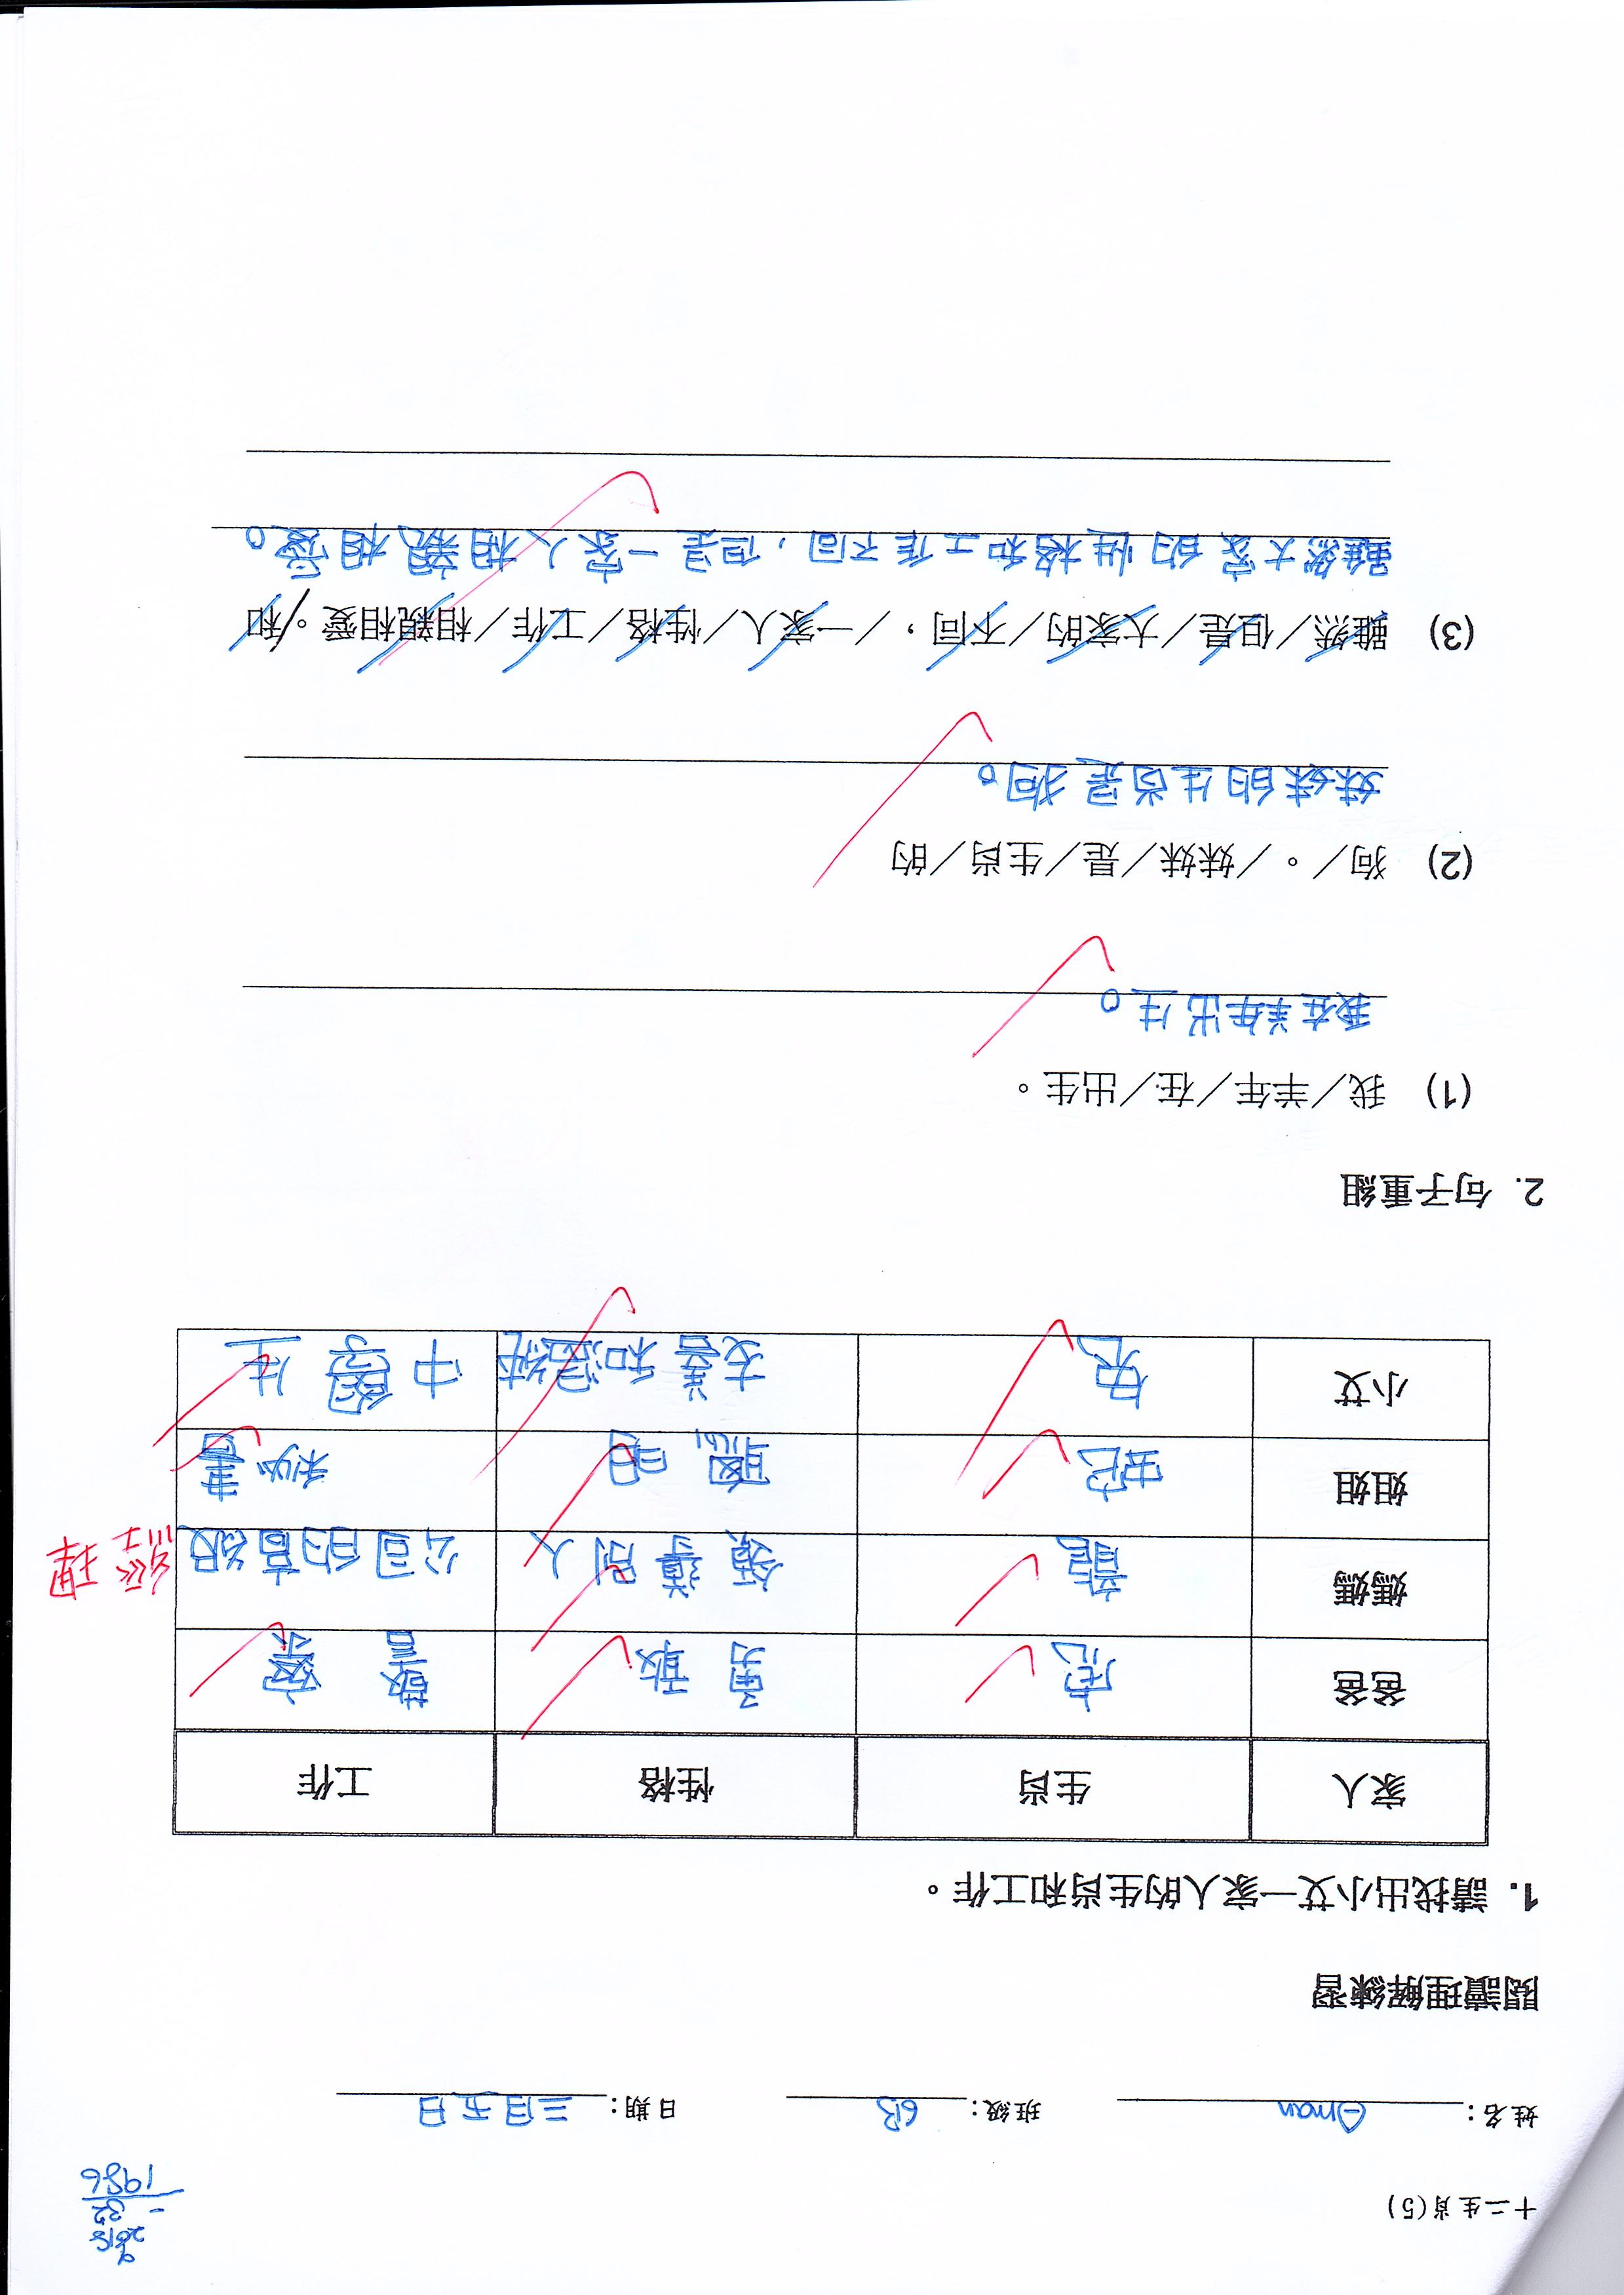 十二生肖(5)
2018
- 32
1986
姓名： Oman 班級： 6B 日期： 三月五日
閱讀理解練習
1. 請找出小艾一家人的生肖和工作。
家人 生肖 性格 工作
爸爸 虎 勇敢 警察
媽媽 龍 領導別人 公司的高級 經理
姐姐 蛇 聰明 秘書
小艾 兔 友善和溫純 中學生
2. 句子重組
(1) 我／羊年／在／出生。
我在羊年出生。
(2) 狗／。／妹妹／是／生肖／的
妹妹的生肖是狗。
(3) 雖然／但是／大家的／不同，／一家人／性格／工作／相親相愛。／和
雖然大家的性格和工作不同，但是一家人相親相愛。